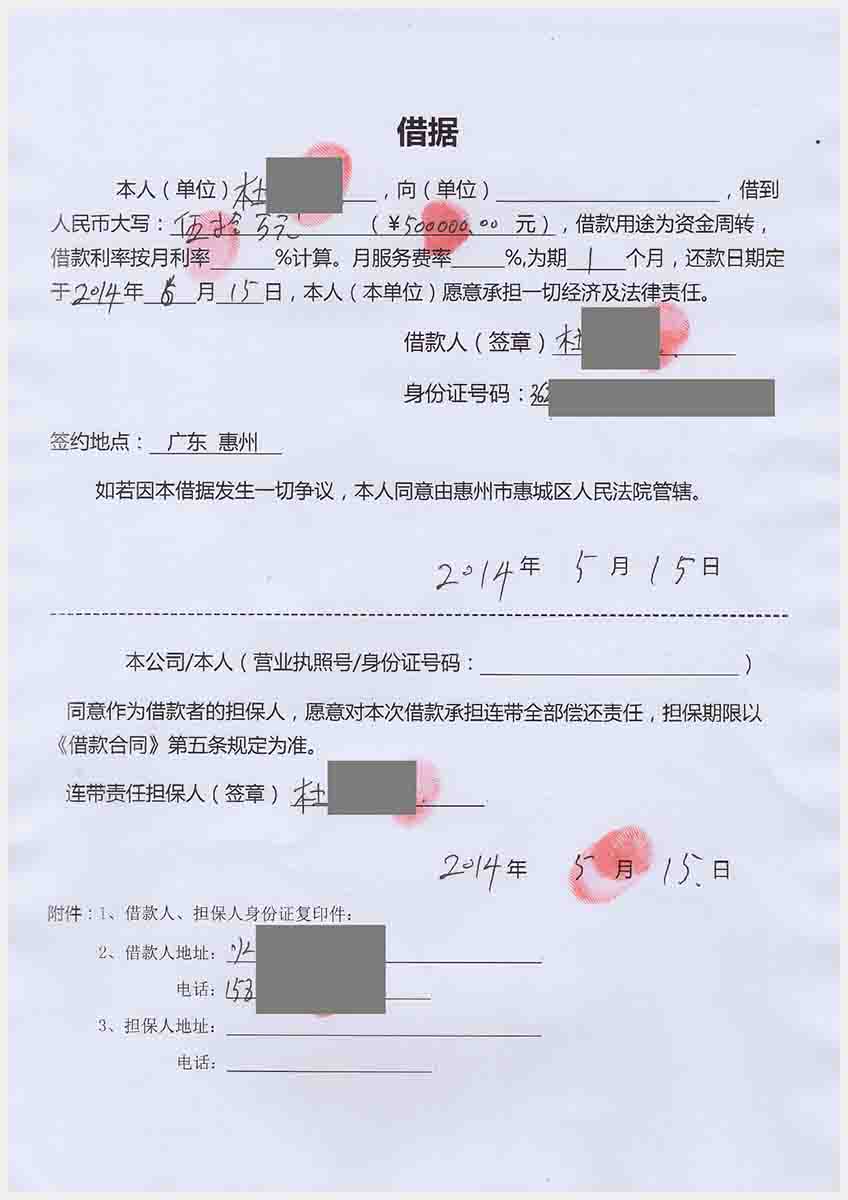 借据
本人（单位）杜 ，向（单位） ，借到
人民币大写：伍拾万元 （￥500000.00 元），借款用途为资金周转，
借款利率按月利率 %计算。月服务费率 %,为期 1 个月，还款日期定
于2014年 6 月 15日，本人（本单位）愿意承担一切经济及法律责任。
借款人（签章）杜
身份证号码：362
签约地点： 广东 惠州
如若因本借据发生一切争议，本人同意由惠州市惠城区人民法院管辖。
2014年 5 月 15日
本公司/本人（营业执照号/身份证号码： ）
同意作为借款者的担保人，愿意对本次借款承担连带全部偿还责任，担保期限以
《借款合同》第五条规定为准。
连带责任担保人（签章）杜
2014年 5 月 15.日
附件：1、借款人、担保人身份证复印件：
2、借款人地址：
电话：153
3、担保人地址：
电话：